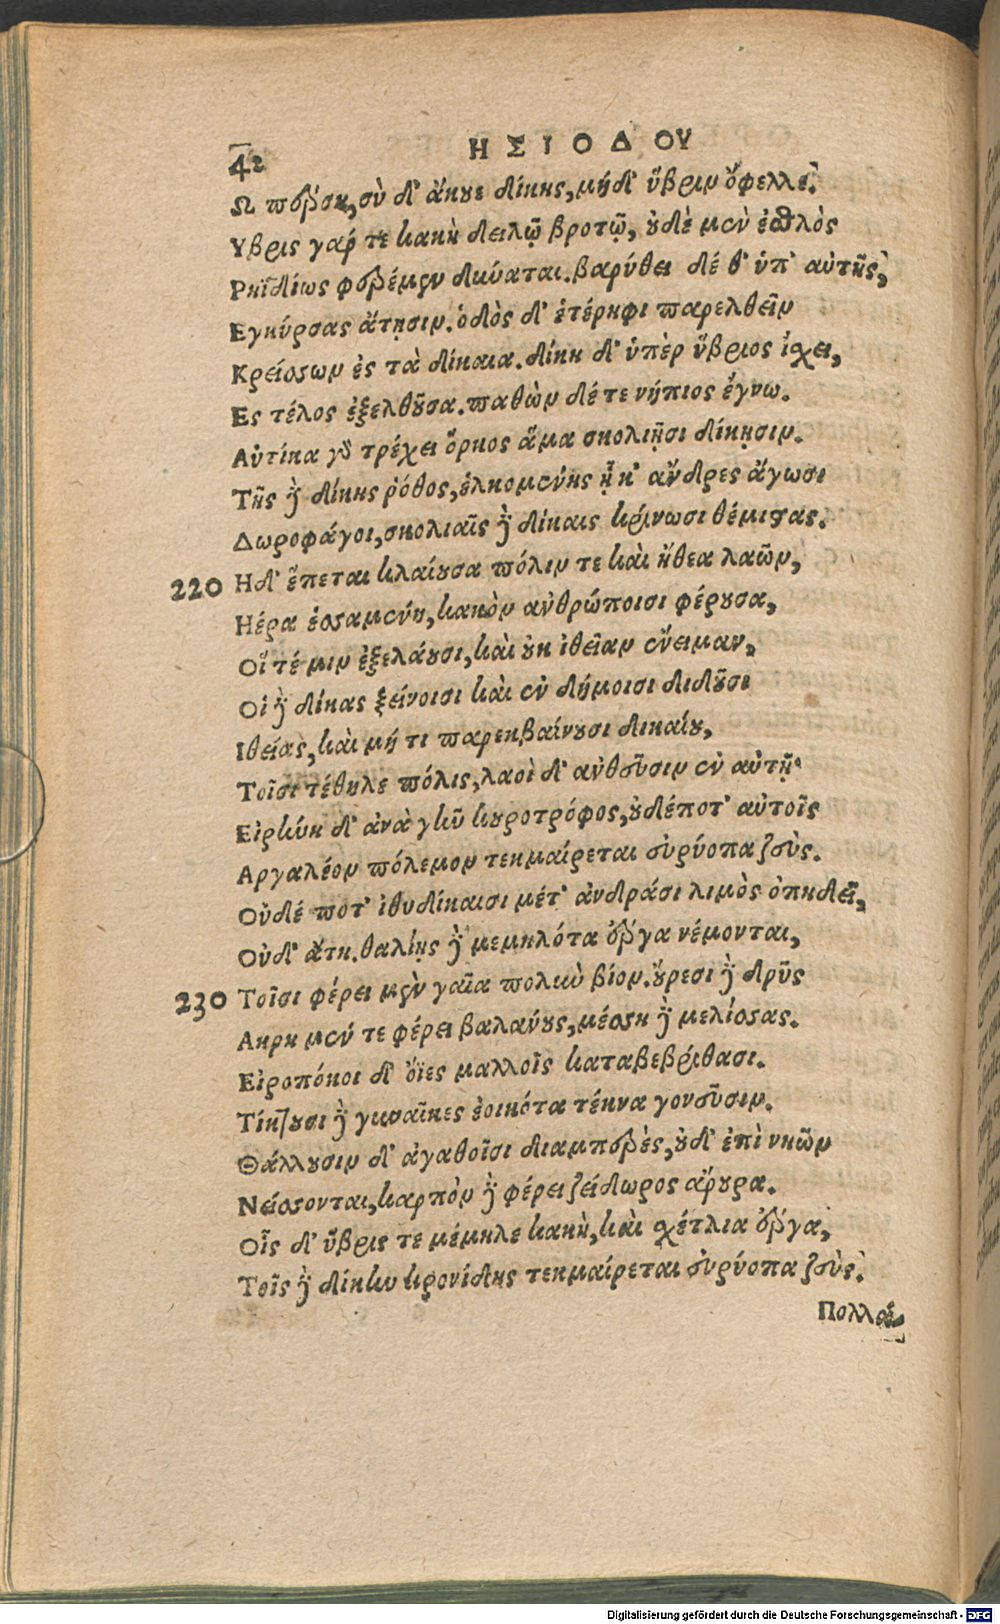 42
ΗΣΙΟΔΟΥ
Ω πέρση, σὺ δ' ἄκουε δίκης, μήδ' ὕβριν ὄφελλε.
Υβρις γάρ τε κακὴ δειλῷ βροτῷ, οὐδὲ μὲν ἐσθλὸς
Ρηϊδίως φερέμεν δύναται. βαρύθει δέ θ' ὑπ' αὐτῆς,
Εγκύρσας ἄτῃσιν. ὁδὸς δ' ἑτέρηφι παρελθεῖν
Κρείσσων ἐς τὰ δίκαια. δίκη δ' ὑπὲρ ὕβριος ἴσχει,
Ες τέλος ἐξελθοῦσα. παθὼν δέ τε νήπιος ἔγνω.
Αὐτίκα γὰρ τρέχει ὅρκος ἅμα σκολιῇσι δίκῃσιν.
Τῆς δὲ δίκης ῥόθος, ἑλκομένης ᾗ κ' ἄνδρες ἄγωσι
Δωροφάγοι, σκολιαῖς δὲ δίκαις κρίνωσι θέμιστας.
220 Ηδ' ἕπεται κλαίουσα πόλιν τε καὶ ἤθεα λαῶν,
Ηέρα ἑσσαμένη, κακὸν ἀνθρώποισι φέρουσα,
Οἵ τέ μιν ἐξελάουσι, καὶ οὐκ ἰθεῖαν ἔνειμαν.
Οἱ δὲ δίκας ξείνοισι καὶ ἐν δήμοισι διδοῦσι
Ιθείας, καὶ μή τι παρεκβαίνουσι δικαίου,
Τοῖσι τέθηλε πόλις, λαοὶ δ' ἀνθεῦσιν ἐν αὐτῇ.
Εἰρήνη δ' ἀνὰ γῆν κουροτρόφος, οὐδέποτ' αὐτοῖς
Αργαλέον πόλεμον τεκμαίρεται εὐρύοπα ζεὺς.
Οὐδέ ποτ' ἰθυδίκαισι μέτ' ἀνδράσι λιμὸς ὀπηδεῖ,
Οὐδ' ἄτη. θαλίῃς δὲ μεμηλότα ἔργα νέμονται,
230 Τοῖσι φέρει μὲν γαῖα πολὺν βίον. οὔρεσι δὲ δρῦς
Ακρη μέν τε φέρει βαλάνους, μέσση δὲ μελίσσας.
Εἰροπόκοι δ' ὄϊες μαλλοῖς καταβεβρίθασι.
Τίκτουσι δὲ γυναῖκες ἐοικότα τέκνα γονεῦσιν.
Θάλλουσιν δ' ἀγαθοῖσι διαμπερὲς, οὐδ' ἐπὶ νηῶν
Νείσσονται, καρπὸν δὲ φέρει ζείδωρος ἄρουρα.
Οἷς δ' ὕβρις τε μέμηλε κακὴ, καὶ σχέτλια ἔργα,
Τοῖς δὲ δίκην κρονίδης τεκμαίρεται εὐρύοπα ζεὺς.
Πολλά
Digitalisierung gefördert durch die Deutsche Forschungsgemeinschaft - DFG